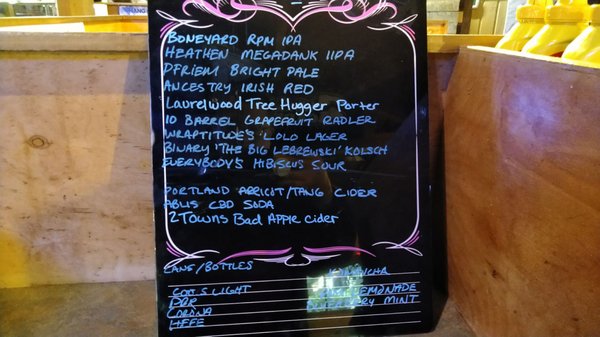 BONEYARD RPM IPA
HEATHEN MEGADANK IIPA
PFRIEM BRIGHT PALE
ANCESTRY IRISH RED
Laurelwood Tree Hugger Porter
10 BARREL GRAPEFRUIT RADLER
WRAPTITUDE'S 'LOLO LAGER
BINARY 'THE BIG LEBREWSKI' KOLSCH
EVERYBODY'S HIBISCUS SOUR
PORTLAND APRICOT/TANG CIDER
ABLIS CBD SODA
2 Towns Bad Apple Cider
CANS/BOTTLES
COORS LIGHT
PBR
CORONA
HEFE
KOMBUCHA
LEMONADE
MINT